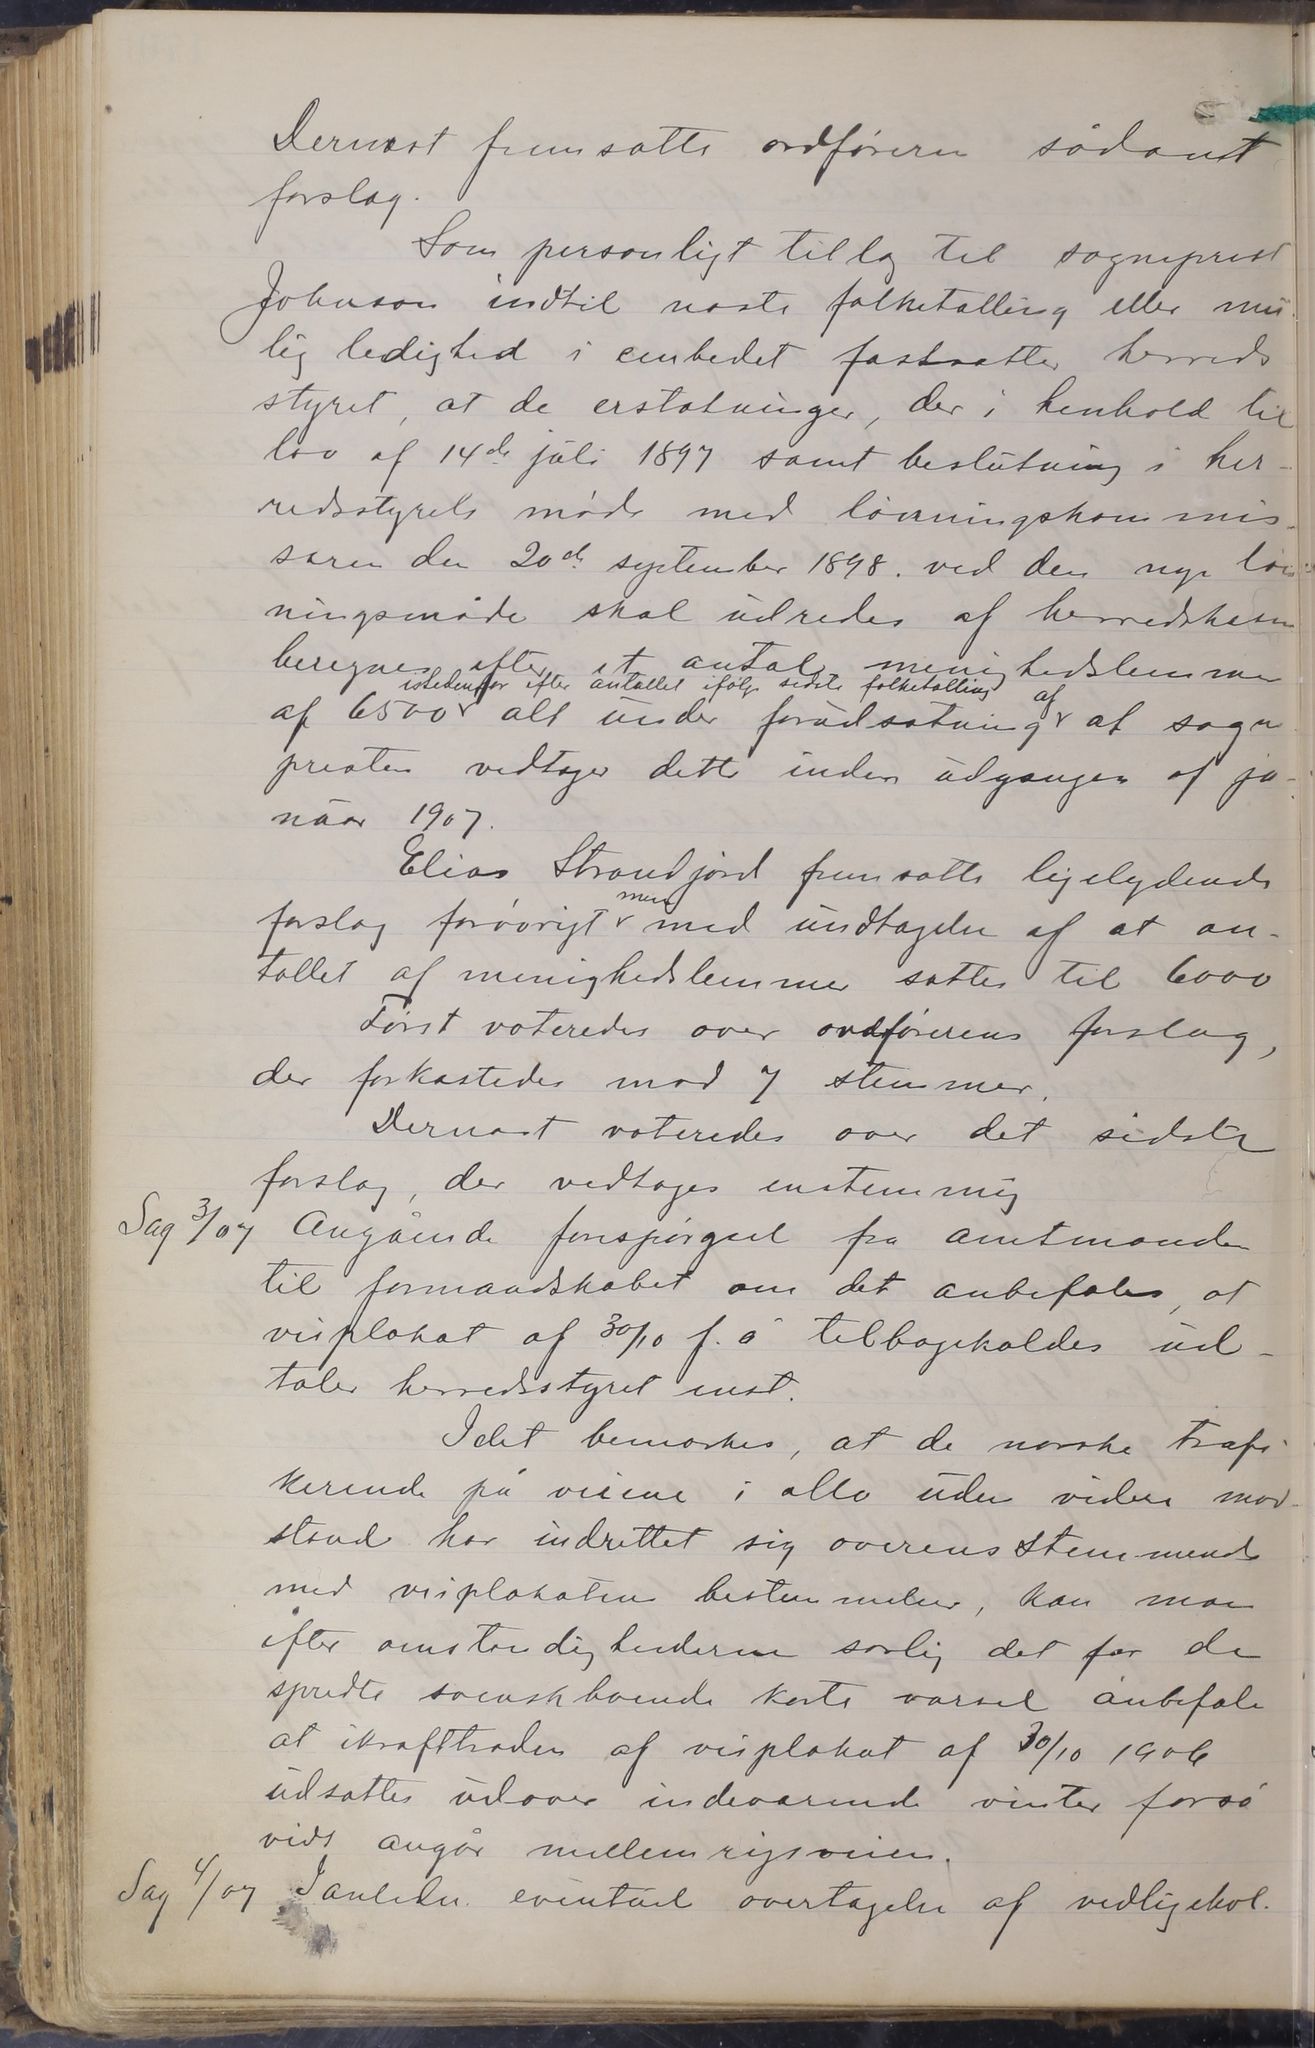 Dernæst fremsatte ordføreren sådant
forslag.
Som personligt tillæg til sogneprest
Johnson indtil næste folketælling eller mu-
lig ledighed i embedet fastsætter herreds
styret, at de erstatninger, der i henhold til
lov af 14de juli 1897 samt beslutning i her-
redsstyrets møde med lønningskommis-
særen den 20de september 1898. ved den nye løn
ningsmåde skal udredes af herredskassen
beregnes efter et antal menighedslemmer
istedenfor efter antallet ifølge sidste folketælling af
af 6500 alt under forudsætning at sogne
presten vedtager dette inden udgangen af ja-
nuar 1907.
Elias Strandjord fremsatte ligelydende
men
forslag forøvrigt med undtagelse af at an-
tallet af menighedslemmer sættes til 6000
Først voteredes over ordførerens forslag,
der forkastedes mod 7 stemmer.
Dernæst voteredes over det sidste
forslag, der vedtages enstemmig
Sag 3/07 Angående forespørgsel fra amtmanden
til formandskabet om det anbefales, at
veiplakat af 30/10 f. å tilbagekaldes ud-
taler herredsstyret enst.
Idet bemærkes, at de norske trafi
kerende på veiene i allo uden videre mod-
stand har indrettet sig overensstemmende
med veiplakatens bestemmelser, kan man
efter omstændighederne særlig det for de
spredte svenskboende korte varsel anbefale
at ikrafttræden af veiplakat af 30/10 1906
udsættes udover indeværende vinter forså
vidt angår mellemrigsveien.
Sag 4/07 I anledn. eventuel overtagelse af vedligehol.